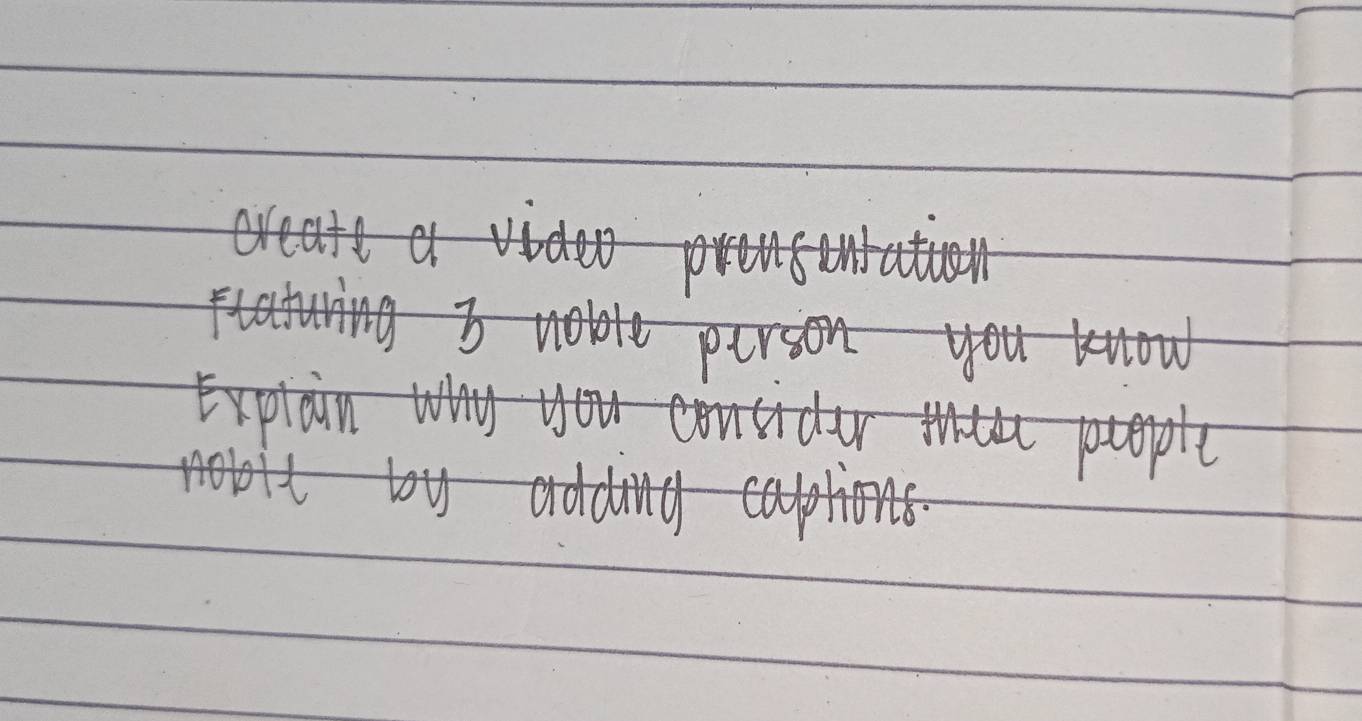 create a video prensentation
Featuring 3 noble person you know
Explain why you consider these people
noble by adding captions.